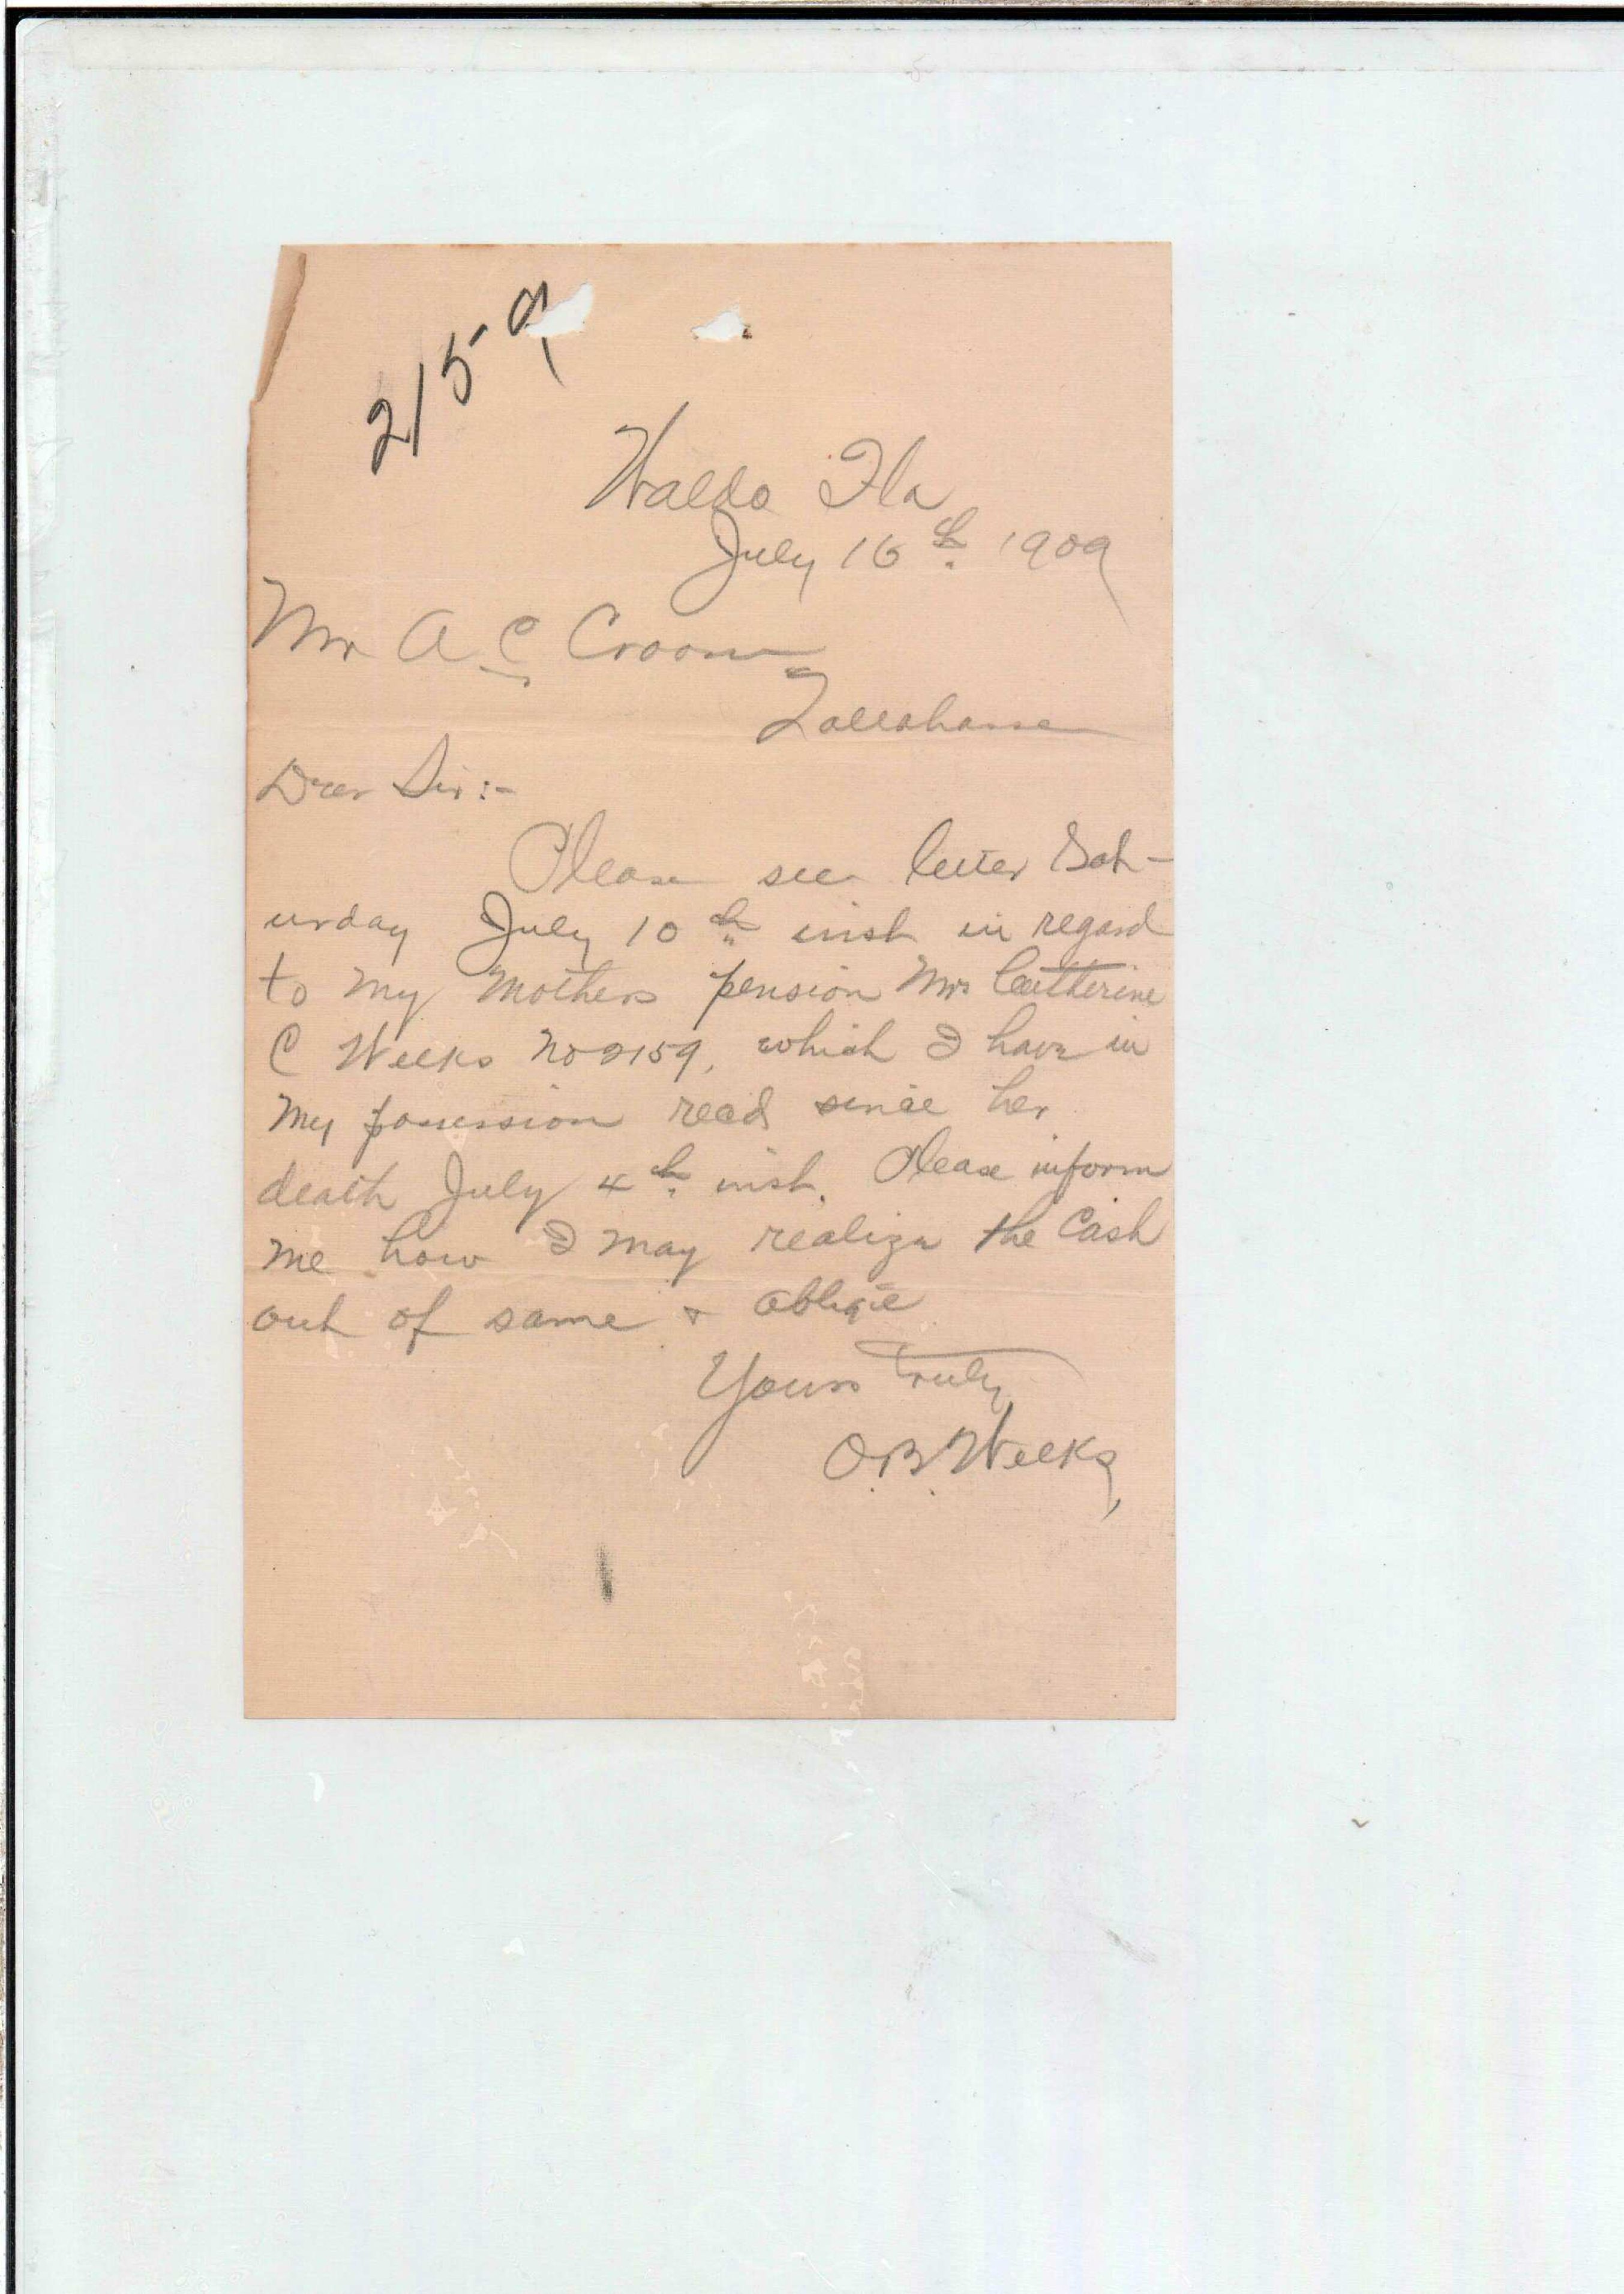 2159
Waldo Fla
July 16th 1909
Mr A C Croom
Tallahassee
Dear Sir :-
Please see letter Sat-
urday July 10th inst in regard
to my Mothers pension Mrs Catherine
C Weeks No 2159, which I have in
my possession recd since her
death July 4th inst. Please inform
me how I may realize the Cash
out of same & oblige
Yours Truly
O.B. Weeks,